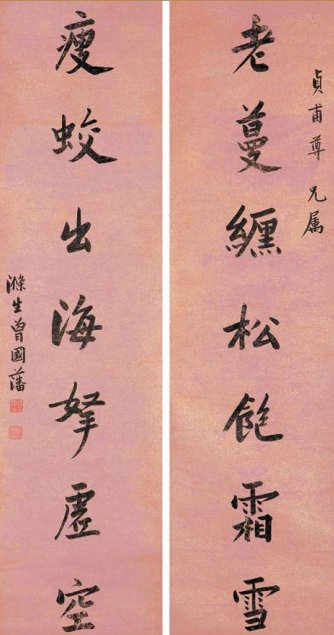 貞甫尊兄属
老蔓纏松飽霜雪
瘦蛟出海拏虛空
滌生曾國藩